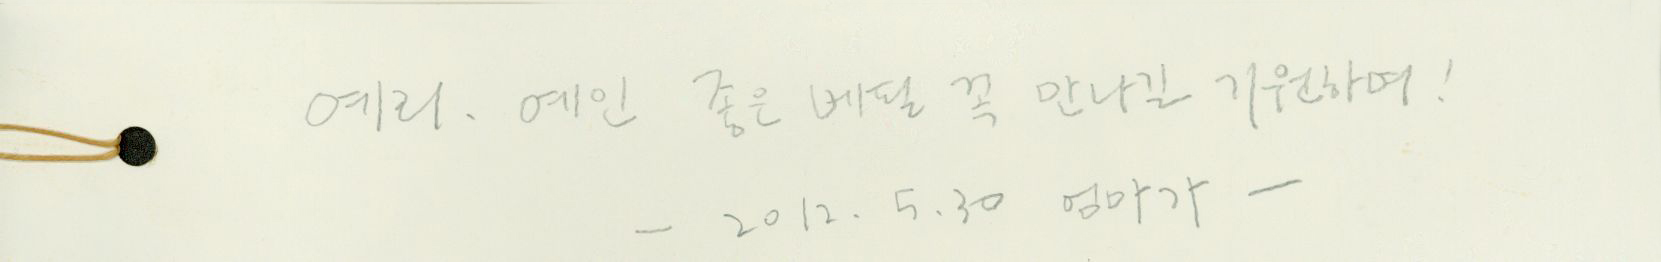 예리. 예인 좋은 베필 꼭 만나길 기원하며!
- 2012. 5.30 엄마가 -